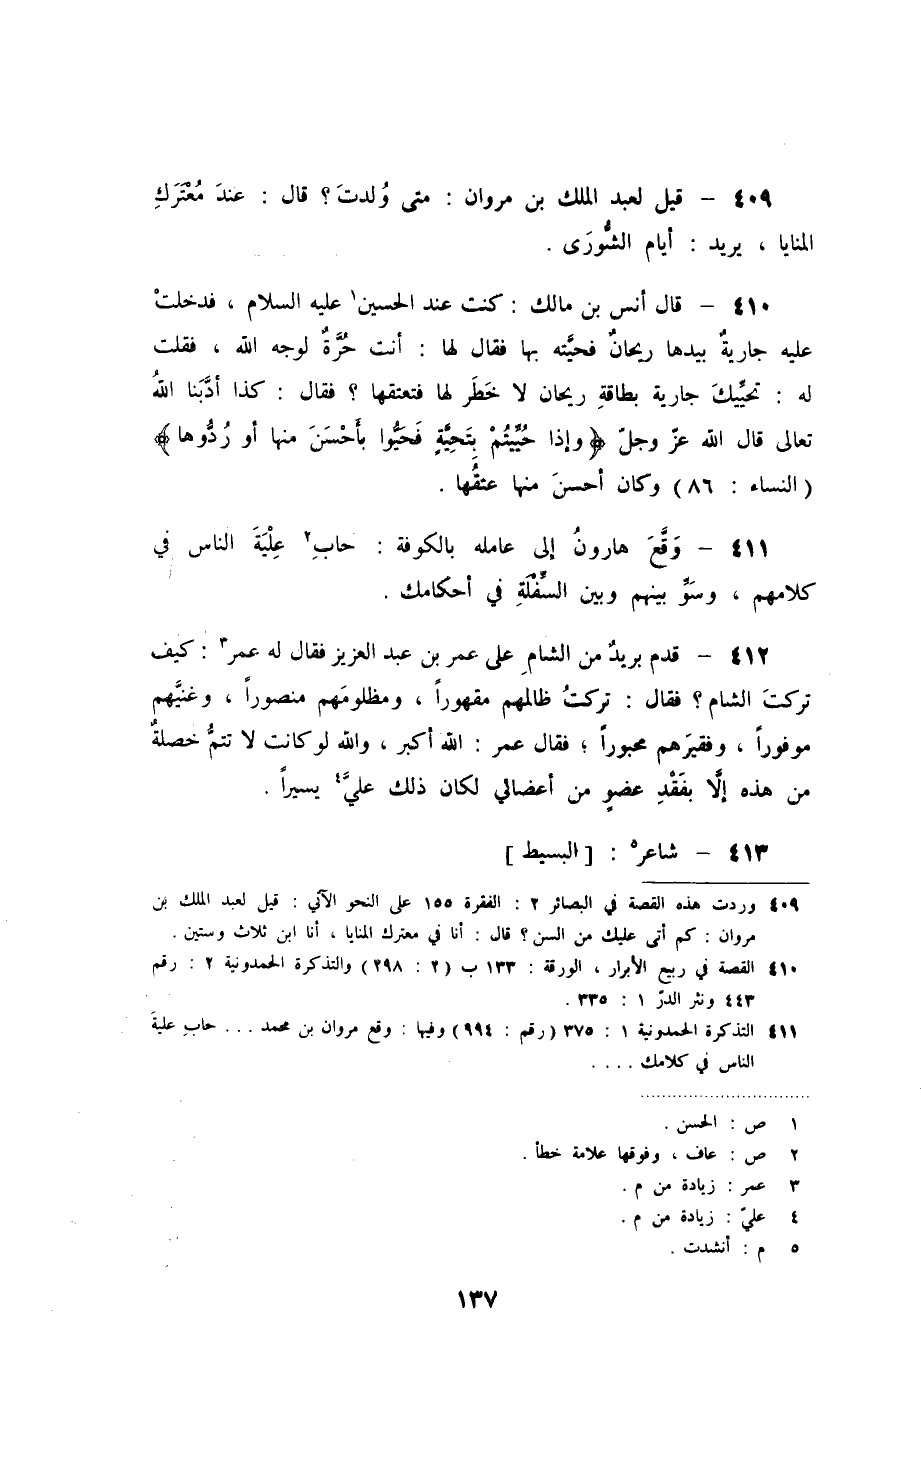 ٤٠٩ – قيل لعبد الملك بن مروان : متى وُلدتَ ؟ قال : عندَ مُعْتَرَكِ
المنايا ، يريد : أيام الشُّورَى .
٤١٠ – قال أنس بن مالك : كنت عند الحسين١ عليه السلام ، فدخلتْ
عليه جاريةٌ بيدها ريحانٌ فحيَّته بها فقال لها : أنت حُرَّةٌ لوجه الله ، فقلت
له : تحيِّيكَ جارية بطاقةِ ريحان لا خَطَر لها فتعتقها ؟ فقال : كذا أدَّبَنا اللهُ
تعالى قال الله عزّ وجلّ ﴿وإذا حُيِّيتُمْ بِتَحِيَّةٍ فَحَيُّوا بأَحْسَنَ منها أو رُدُّوها﴾
(النساء : ٨٦) وكان أحسنَ منها عتقُها .
٤١١ – وَقَّعَ هارونُ إلى عامله بالكوفة : حابِ٢ عِلْيَةَ الناس في
كلامهم ، وسَوِّ بينهم وبين السِّفْلَةِ في أحكامك .
٤١٢ – قدم بريدٌ من الشامِ على عمر بن عبد العزيز فقال له عمر٣ : كيف
تركتَ الشام ؟ فقال : تركتُ ظالمهم مقهوراً ، ومظلومَهم منصوراً ، وغنيَّهم
موفوراً ، وفقيرَهم محبوراً ؛ فقال عمر : الله أكبر ، والله لو كانت لا تتمُّ خصلةٌ
من هذه إلَّا بفَقْدِ عضوٍ من أعضائي لكان ذلك عليَّ٤ يسيراً .
٤١٣ – شاعر٥ : [البسيط]
٤٠٩ وردت هذه القصة في البصائر ٢ : الفقرة ١٥٥ على النحو الآتي : قيل لعبد الملك بن
مروان : كم أتى عليك من السن ؟ قال : أنا في معترك المنايا ، أنا ابن ثلاث وستين .
٤١٠ القصة في ربيع الأبرار ، الورقة : ١٣٣ ب (٢ : ٢٩٨) والتذكرة الحمدونية ٢ : رقم
٤٤٣ ونثر الدرّ ١ : ٣٣٥ .
٤١١ التذكرة الحمدونية ١ : ٣٧٥ (رقم : ٩٩٤) وفيها : وقع مروان بن محمد ... حابِ عليةَ
الناس في كلامك ....
١ ص : الحسن .
٢ ص : عاف ، وفوقها علامة خطأ .
٣ عمر : زيادة من م .
٤ عليّ : زيادة من م .
٥ م : أنشدت .
١٣٧